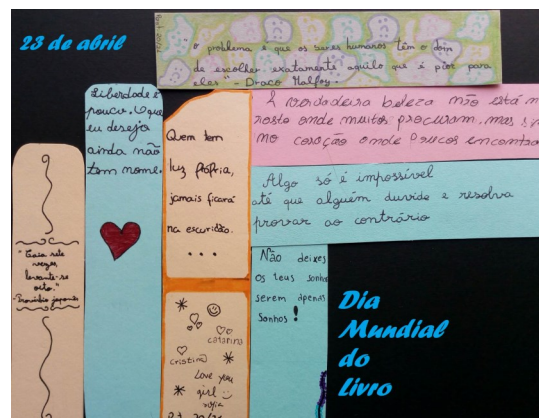 23 de abril
"O problema é que os seres humanos têm o dom
de escolher exatamente aquilo que é pior para
eles" - Draco Malfoy.
Liberdade é
pouco. O que
eu desejo
ainda não
tem nome.
Quem tem
luz própria,
jamais ficará
na escuridão.
...
A verdadeira beleza não está n
rosto onde muitos procuram, mas si
no coração onde poucos encontra
Algo só é impossível
até que alguém duvide e resolva
provar ao contrário
"Caia sete
vezes,
levante-se
oito."
- Provérbio japonês
Não deixes
os teus sonho
serem apenas
sonhos!
catarina
cristina
Love you
girl
sofia
Dia
Mundial
do
Livro